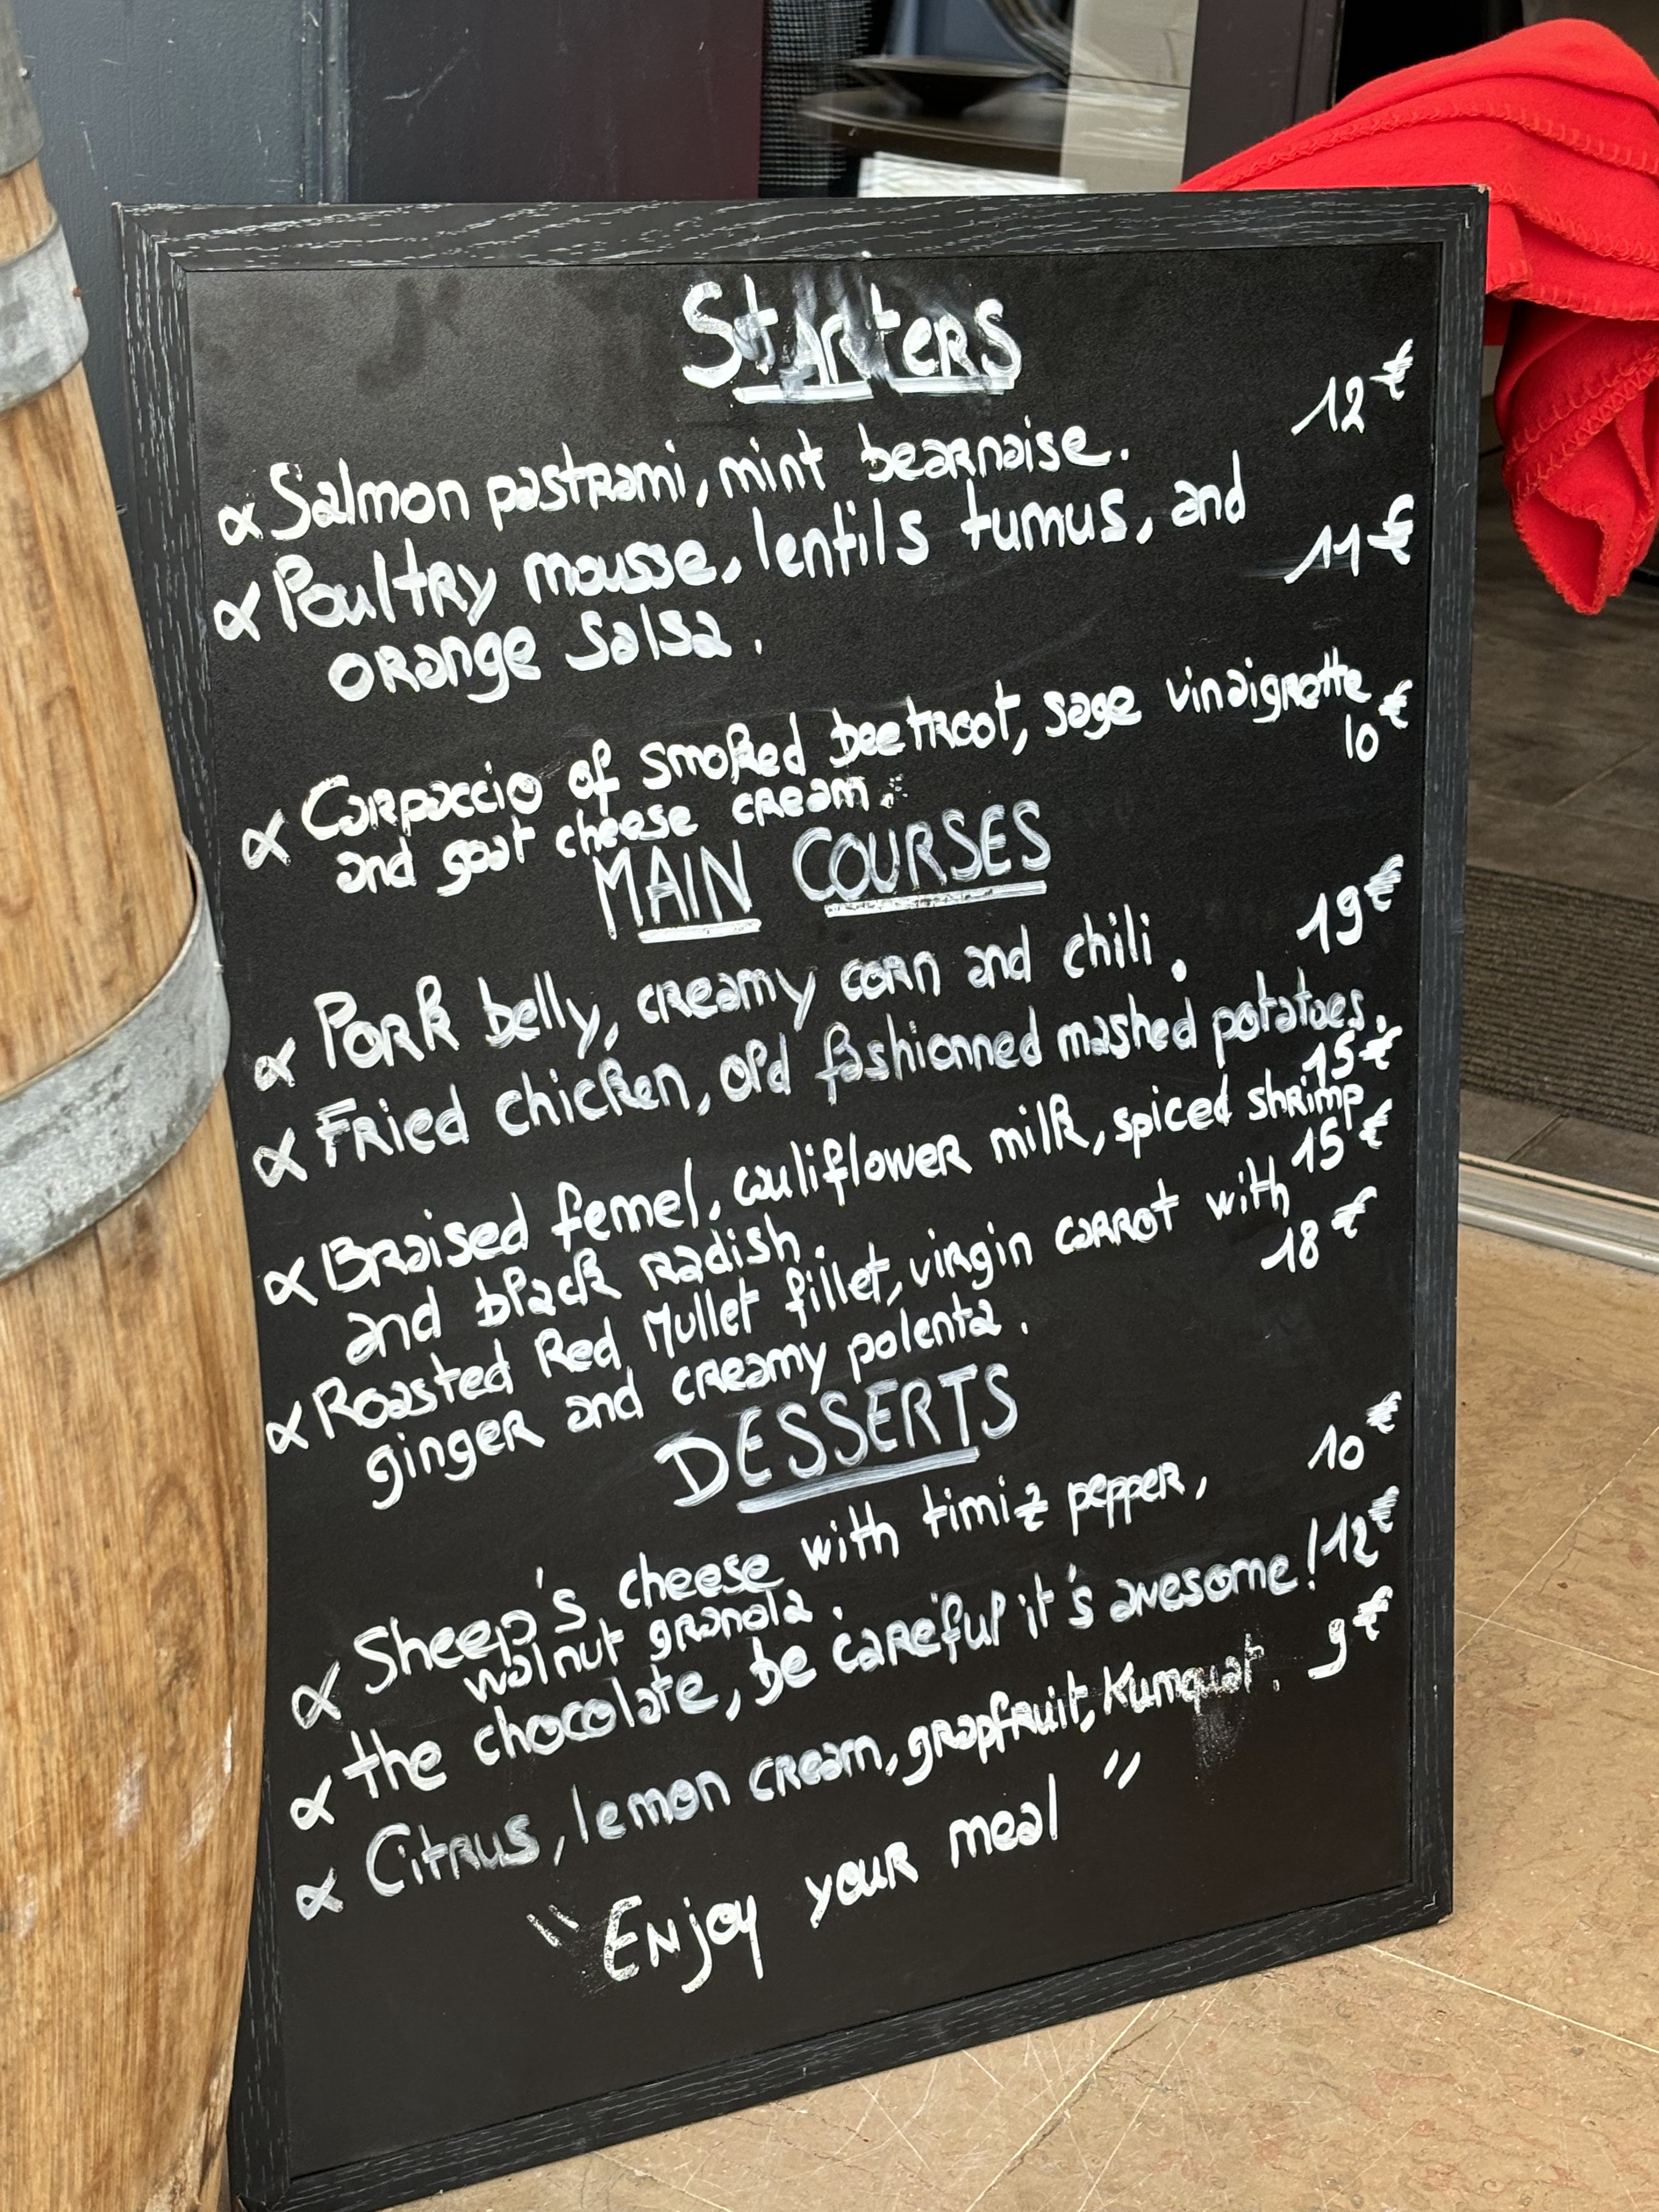 Starters
∝ Salmon pastrami, mint bearnaise. 12€
∝ Poultry mousse, lentils tumus, and 11€
orange salsa.
∝ Carpaccio of smoked beetroot, sage vinaigrette
and goat cheese cream. 10€
MAIN COURSES
∝ Pork belly, creamy corn and chili. 19€
∝ Fried chicken, old fashionned mashed potatoes.
15€
∝ Braised femel, cauliflower milk, spiced shrimp
and black radish. 15€
∝ Roasted Red Mullet fillet, virgin carrot with
ginger and creamy polenta. 18€
DESSERTS
∝ Sheep's cheese with timiz pepper, 10€
walnut granola.
∝ the chocolate, be careful it's awesome! 12€
∝ Citrus, lemon cream, grapfruit, Kumquat. 9€
"Enjoy your meal"